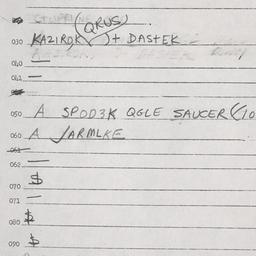 (QRUS)
030 KAZIROK )+ DASTEK -
040 —
041 —
050 A SPOD3K QGLE SAUCER (10
060 A JARMLKE
061
062 —
070 $
071 —
080 $
090 $